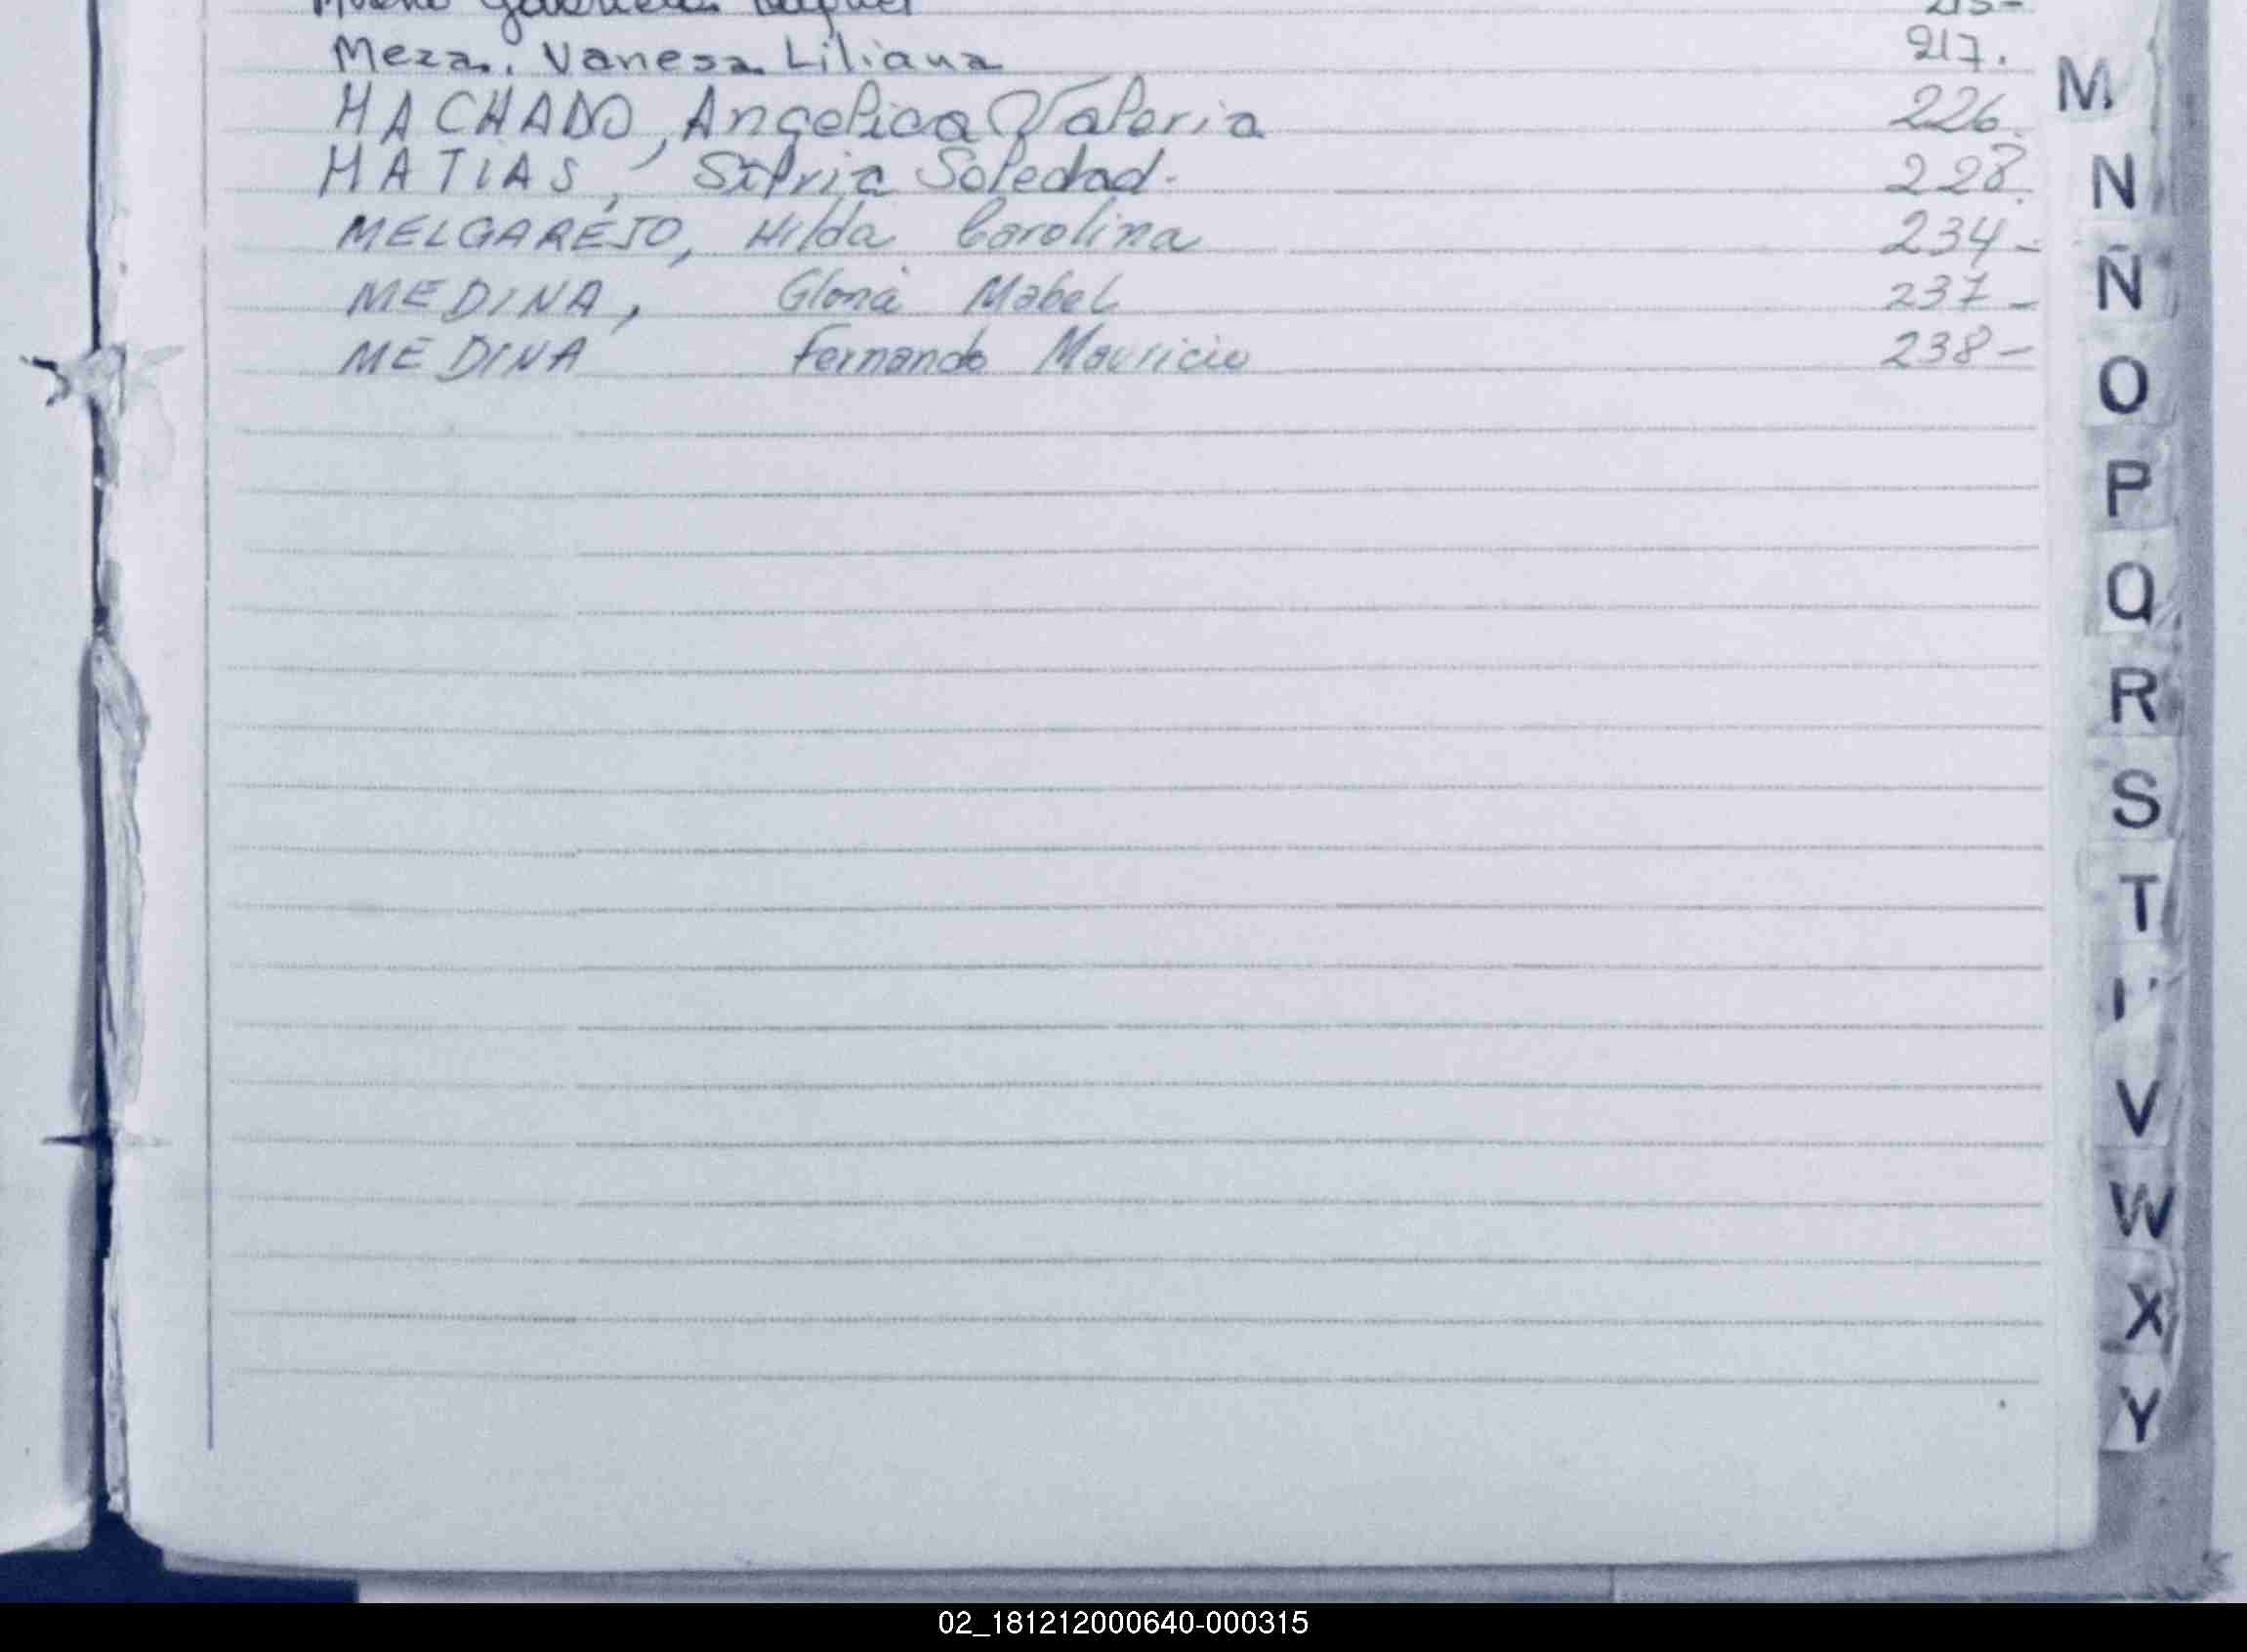 Gabriela Raquel 215-
Meza, Vanesa Liliana 217.
MACHADO, Angelica Valeria 226.
MATIAS, Silvia Soledad. 228.
MELGAREJO, Hilda Carolina 234-
MEDINA, Gloria Mabel 237-
MEDINA Fernando Mauricio 238-
M
N
Ñ
O
P
Q
R
S
T
V
W
X
Y
02_181212000640-000315